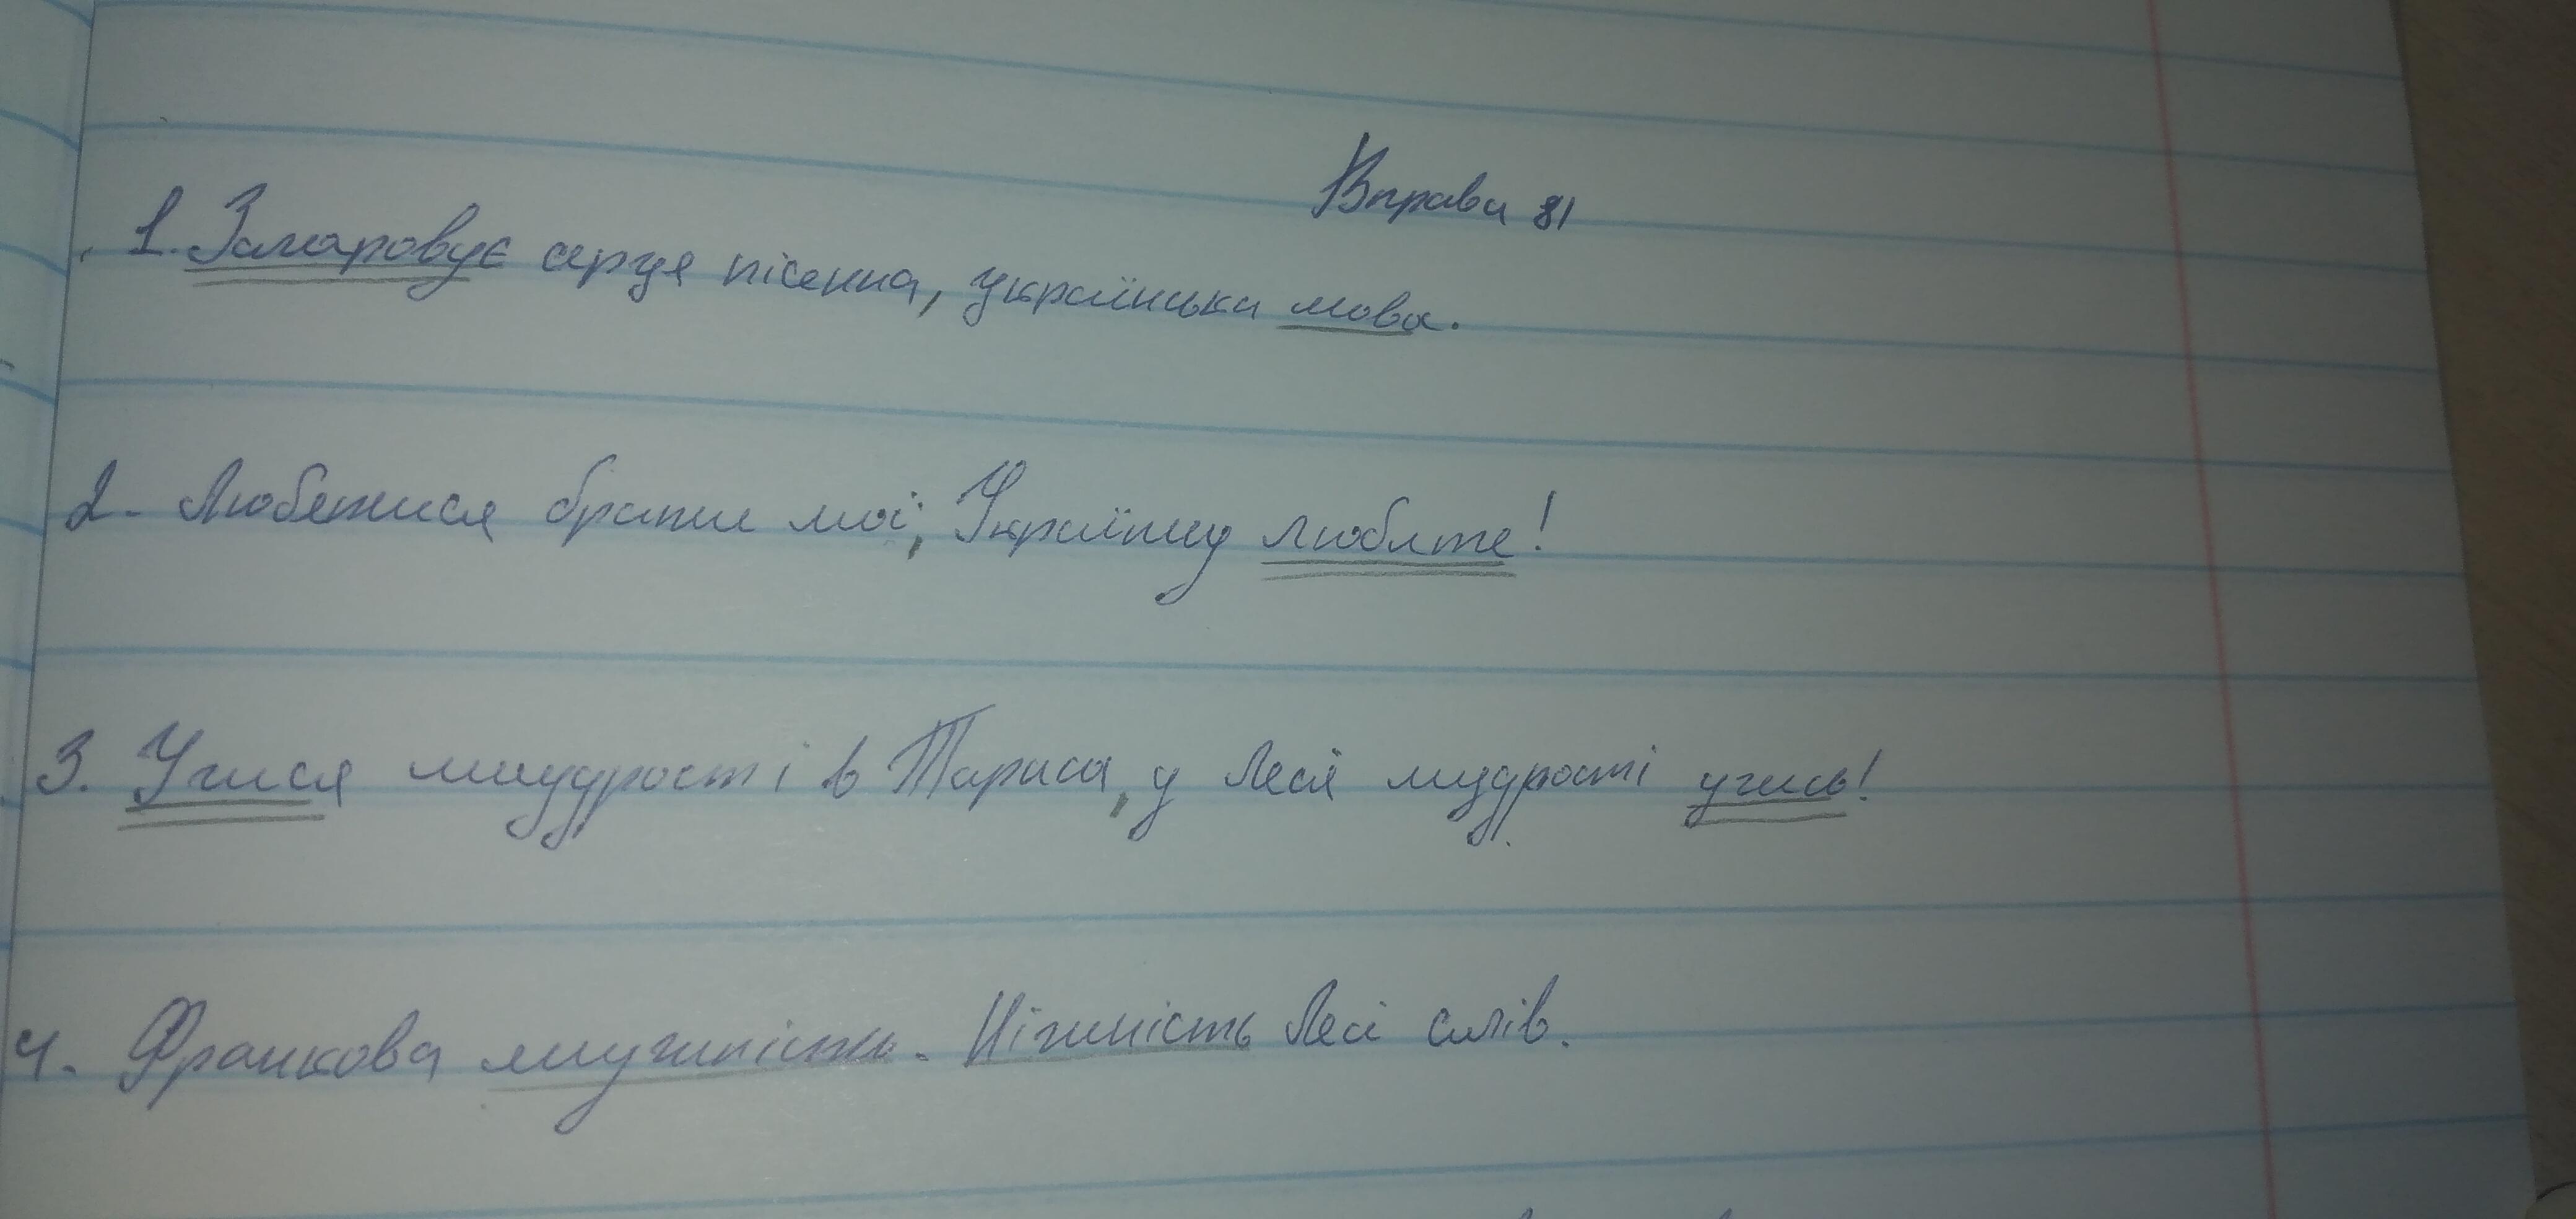 Вправа 81
1. Зачаровує серця пісенна, українська мова.
2. Любетися брати мої, Україину любите!
3. Учися мудрості в Тараса, у Лесі мудрості учись!
4. Франкова мужність. Ніжність Лесі слів.